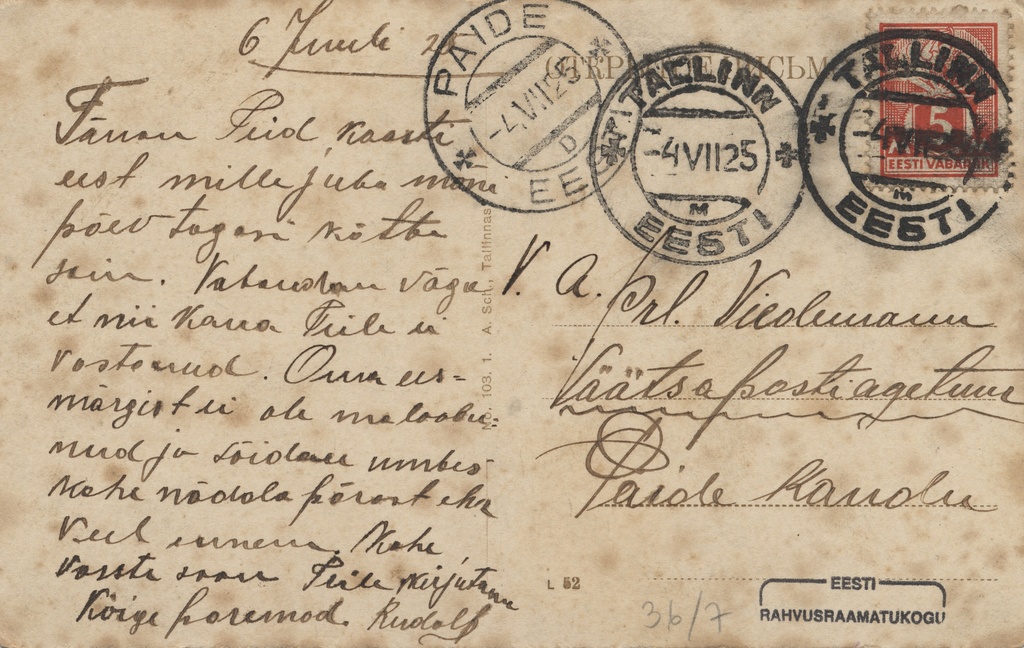 6 Juuli 2
Tänan Teid kaarti
eest mille juba mõne
päev tagasi kätte
sain. Vabandan väga
et nii kaua Teile ei
vastanud. Oma ees-
märgist ei ole ma loobu-
nud ja sõidan umbes
kahe nädala pärast ehk
veel ennem. Kohe
varsti saan Teile kirjutama
Kõige paremad. Rudolf
No 103. 1. A. Sch., Tallinnas
PAIDE
-4.VII25
D
EE
TALLINN
-4VII25
M
EESTI
TALLINN
-4VII25
M
EESTI
5
EESTI VABARIIK
V. A. Prl. Viedemann
Väätsa postiagetuur
Paide kaudu
L 52
36/7
EESTI
RAHVUSRAAMATUKOGU